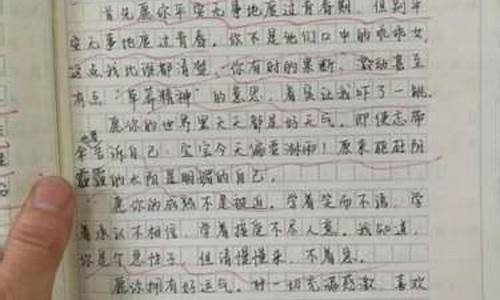 首先愿你平安无事地度过青春期，但别平
安无事地度过青春。你不是他们口中的乖乖女，
这点我比谁都清楚。你有时的果断、激动甚至
有点"草莽精神"的意思，着实让我吓了一跳。
愿你的世界里天天都是好天气。即便忘带
伞也告诉自己：宝宝今天偏要淋雨！原来能驱阴
霾的太阳是明媚的自己。
愿你的成熟不是被迫，学着笑而不语，学
着承认不相信，学着接受不尽人意。我知道，
你是个急性子，但请慢慢来，不着急。
愿你拥有好运气。对一切充满感激，喜欢